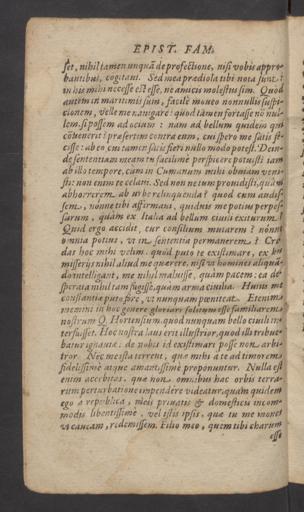 EPIST. FAM.
set, nihil tamen unquã de profectione, nisi vobis appro-
bantibus, cogitavi. Sed mea prædiola tibi nota sunt:
in his mihi necesse est esse, ne amicis molestus sim. Quod
autem in maritimis sum, facile moveo nonnullis suspi-
cionem, velle me navigare: quod tamen fortasse nõ nol-
lem, si possem ad ocium: nam ad bellum quidem qui
cõvenerit? præsertim contra eum, cui spero me satis fe-
cisse: ab eo, cui tamen satis fieri nullo modo potest. Dein-
de sententiam meam tu facillime perspicere potuisti jam
ab illo tempore, cum in Cumanum mihi obviam veni-
sti: non enim te celavi. Sed non
abhorrerem ab urbe relinquenda? quod cum audis-
sem, nonne tibi affirmavi, quidvis me potius perpes-
surum, quàm ex Italia ad bellum civile exiturum?
Quid ergo accidit, cur consilium mutarem? nonne
omnia potius, ut in sententia permanerem? Cre-
das hoc mihi velim, quod puto te existimare, ex his
miseriis nihil aliud me quærere, nisi ut homines aliquã-
do intelligant, me nihil maluisse, quàm pacem: ea de-
sperata nihil tam fugisse, quàm arma civilia. Hujus me
constantiæ puto fore, ut nunquam pœniteat. Etenim
memini in hoc genere gloriari solitum esse familiarem
nostrum Q. Hortensium, quod nunquam bello civili in-
terfuisset. Hoc nostra laus erit illustrior, quod illi tribue-
batur ignaviæ: de nobis id existimari posse non arbi-
tror. Nec me ista terrent, quæ mihi à te ad timorem
fidelissimè atque amantissimè proponuntur. Nulla est
enim acerbitas, quæ non omnibus hac orbis terra-
rum perturbatione impendere videatur, quàm quidem
ego à republica, meis privatis & domesticis incom-
modis libentissimè, vel istis ipsis, quæ tu me mones
ut caveam, redemissem. Filio meo, quem tibi charum
esse